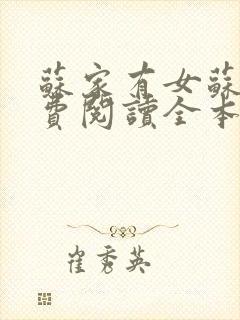 蘇家有女蘇
費閱讀全本
崔秀英